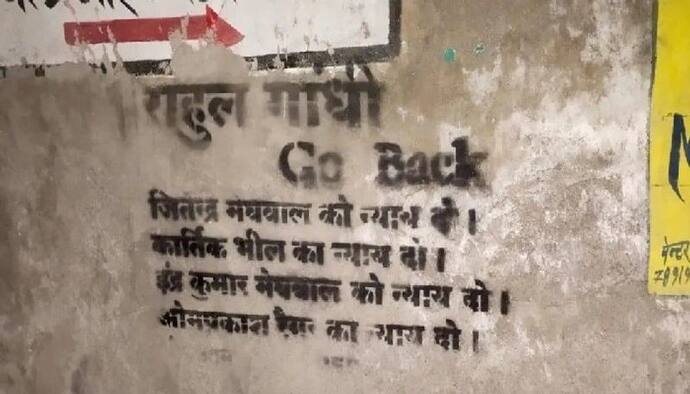 राहुल गांधी
Go Back
जितेन्द्र मेघवाल को न्याय दो।
कार्तिक भील को न्याय दो।
इंद्र कुमार मेघवाल को न्याय दो।
ओमप्रकाश रैगर को न्याय दो।
पेन्टर